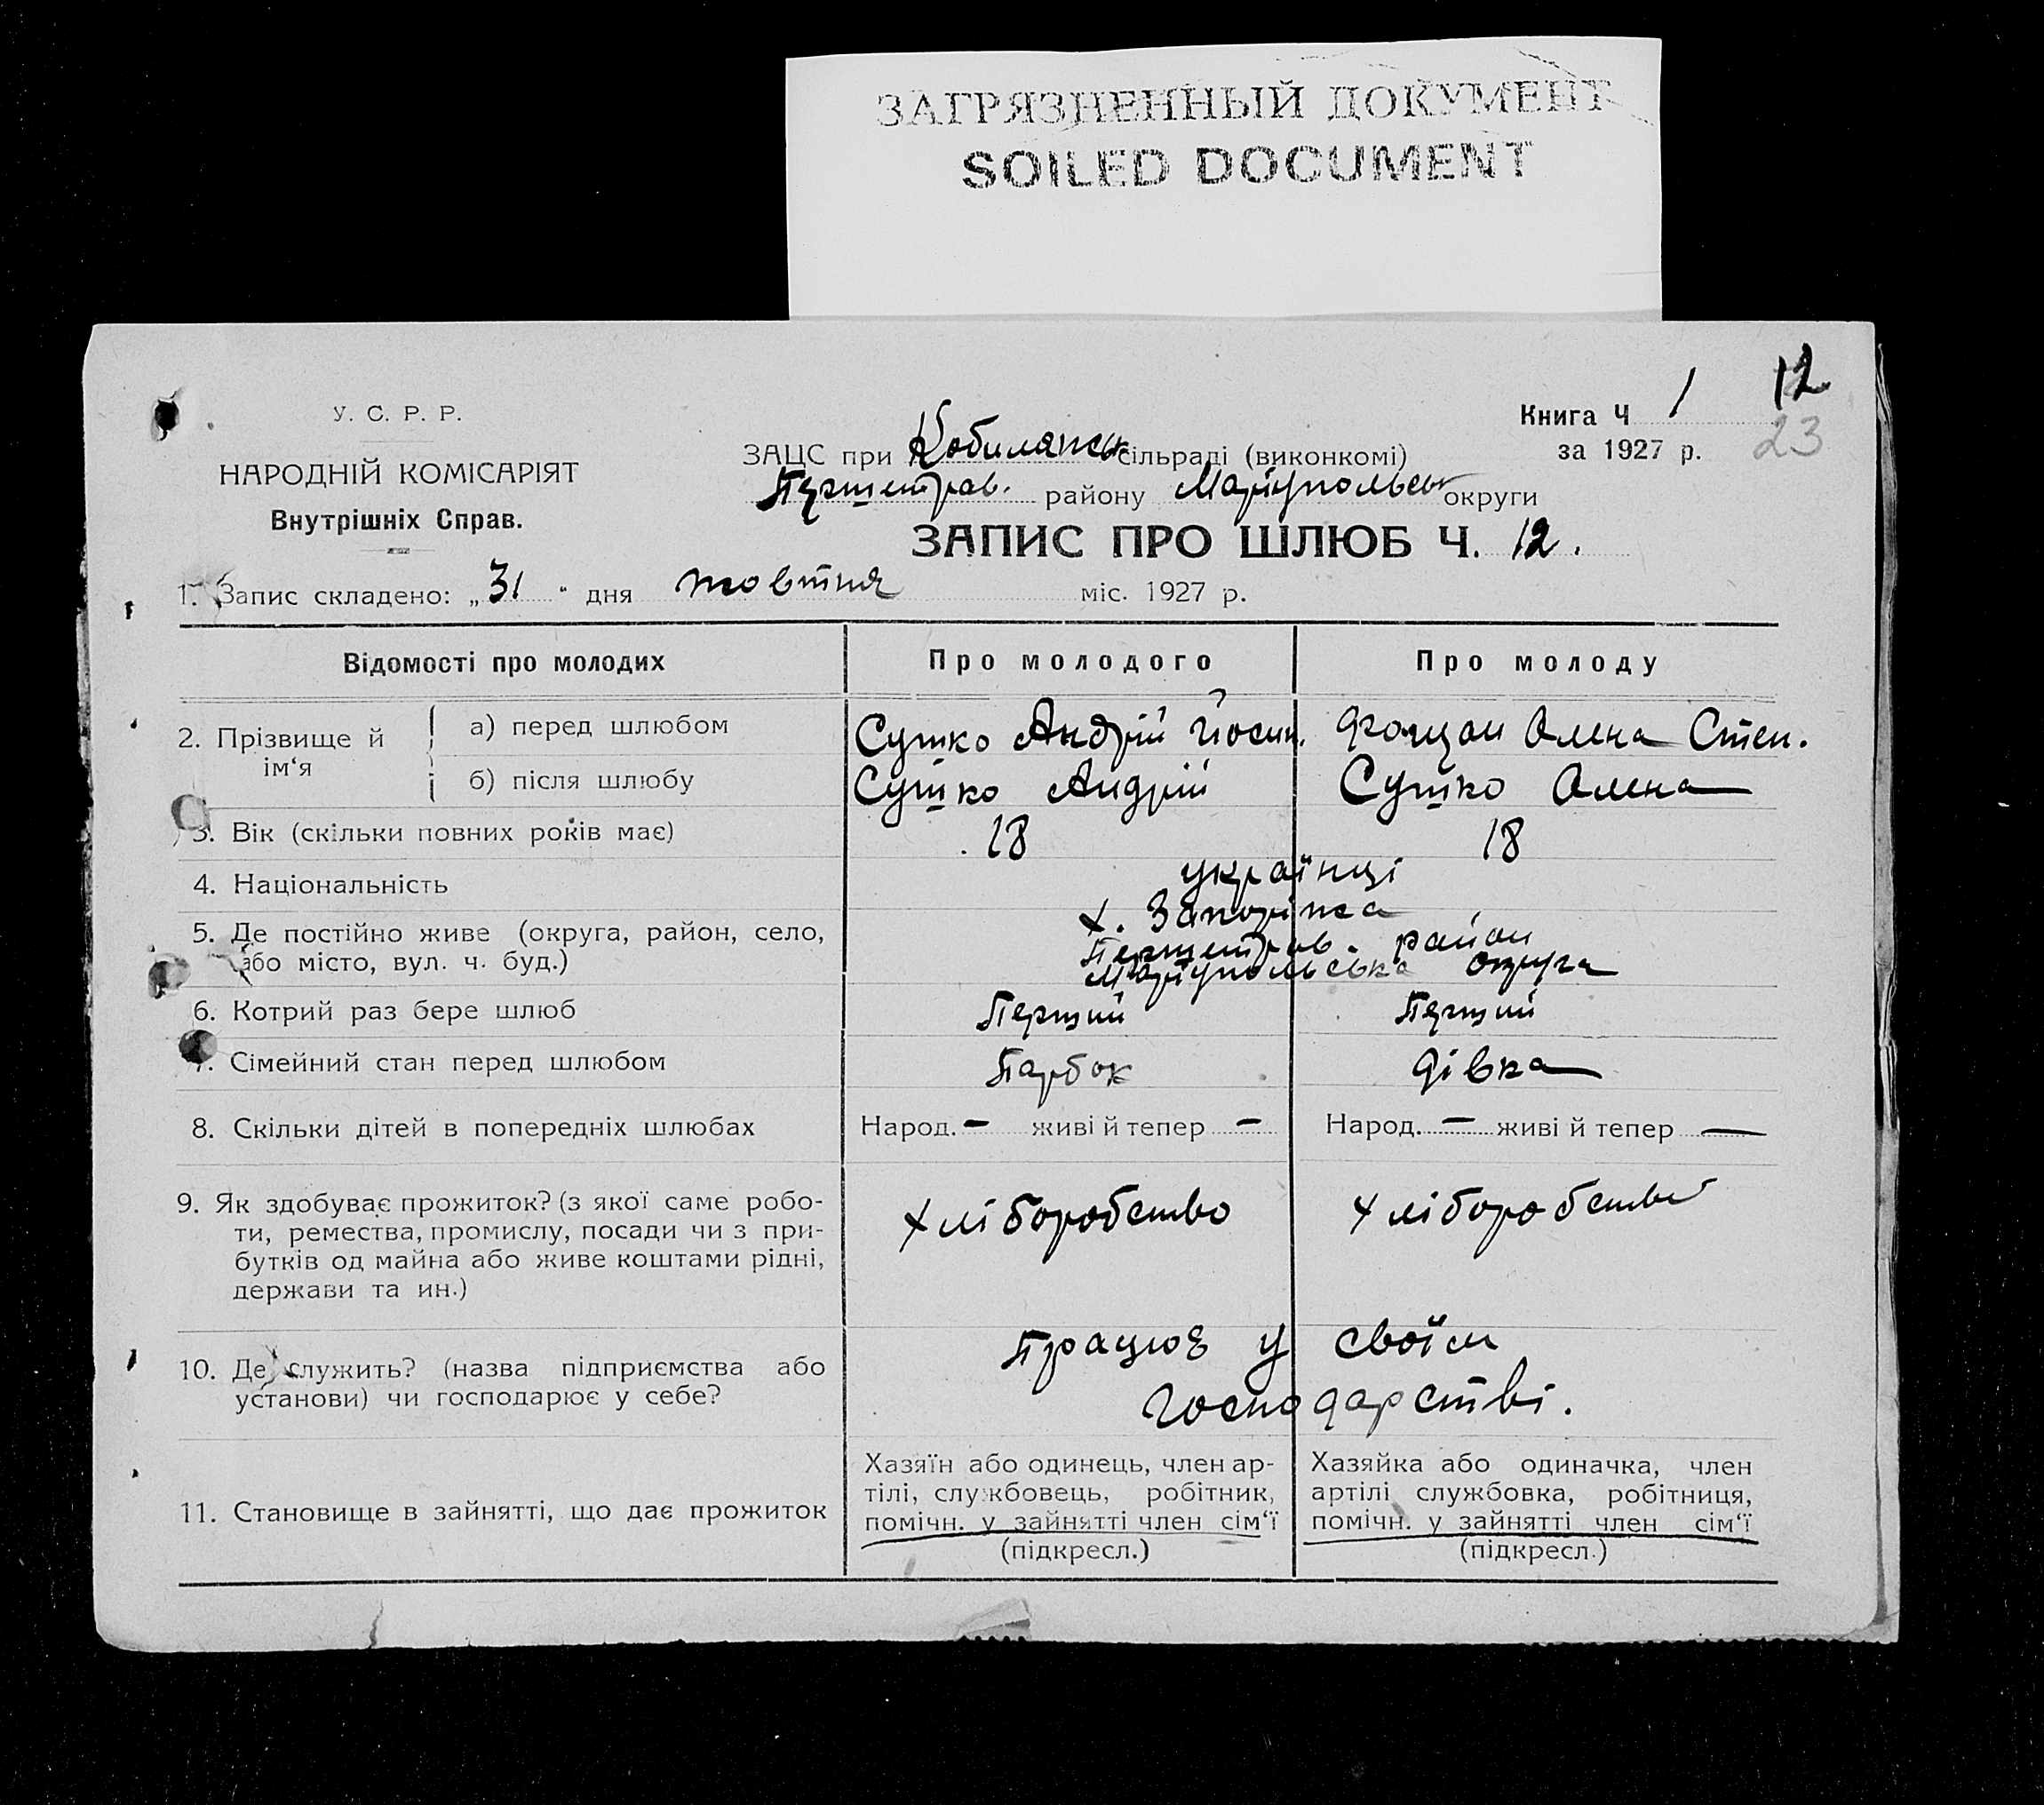 ЗАГРЯЗНЕННЫЙ ДОКУМЕНТ
SOILED DOCUMENT
12
23
Книга Ч 1
за 1927 р.
У. С. Р. Р.
НАРОДНІЙ КОМІСАРІЯТ
Внутрішніх Справ.
ЗАЦС при Кобиляпськ сільраді (виконкомі)
Першетрав. району Маріупольськ округи
ЗАПИС ПРО ШЛЮБ Ч. 12.
1. Запис складено: „31" дня жовтня міс. 1927 р.
Відомості про молодих Про молодого Про молоду
2. Прізвище й ім‘я
а) перед шлюбом Сушко Андрій Йосип. Олена Степ.
б) після шлюбу Сушко Андрій Сушко Олена
3. Вік (скільки повних років має) 18 18
4. Національність українці
5. Де постійно живе (округа, район, село,
або місто, вул. ч. буд.)
х. Запоріжа
Першетрав. район
Маріупольська округа
6. Котрий раз бере шлюб Перший Перший
7. Сімейний стан перед шлюбом Парбок дівка
8. Скільки дітей в попередніх шлюбах Народ. — живі й тепер — Народ. — живі й тепер —
9. Як здобуває прожиток? (з якої саме робо-
ти, ремества, промислу, посади чи з при-
бутків од майна або живе коштами рідні,
держави та ин.)
хліборобство хліборобство
10. Де служить? (назва підприємства або
установи) чи господарює у себе?
Працює у своїм
господарстві.
11. Становище в зайнятті, що дає прожиток
Хазяїн або одинець, член ар-
тілі, службовець, робітник,
помічн. у зайнятті член сім‘ї
(підкресл.)
Хазяйка або одиначка, член
артілі службовка, робітниця,
помічн. у зайнятті член сім‘ї
(підкресл.)